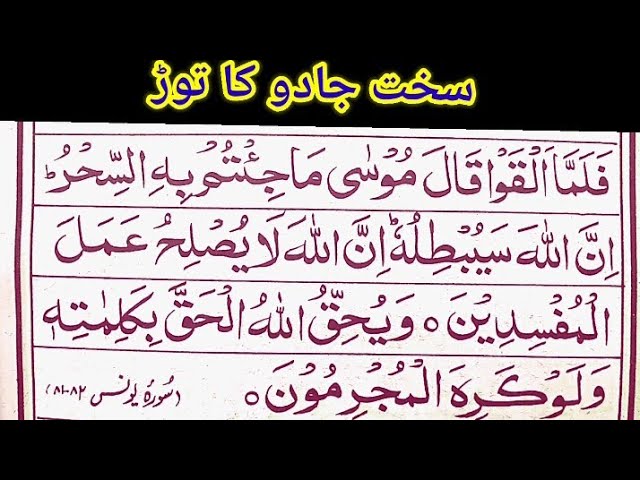 سخت جادو کا توڑ
فَلَمَّاۤ اَلْقَوْا قَالَ مُوْسٰى مَا جِئْتُمْ بِهِ السِّحْرُؕ
اِنَّ اللّٰهَ سَيُبْطِلُهٗؕ اِنَّ اللّٰهَ لَا يُصْلِحُ عَمَلَ
الْمُفْسِدِيْنَ ○ وَيُحِقُّ اللّٰهُ الْحَقَّ بِكَلِمٰتِهٖ
وَلَوْ كَرِهَ الْمُجْرِمُوْنَ ○ (سُورۂ یونس ۸۲-۸۱)